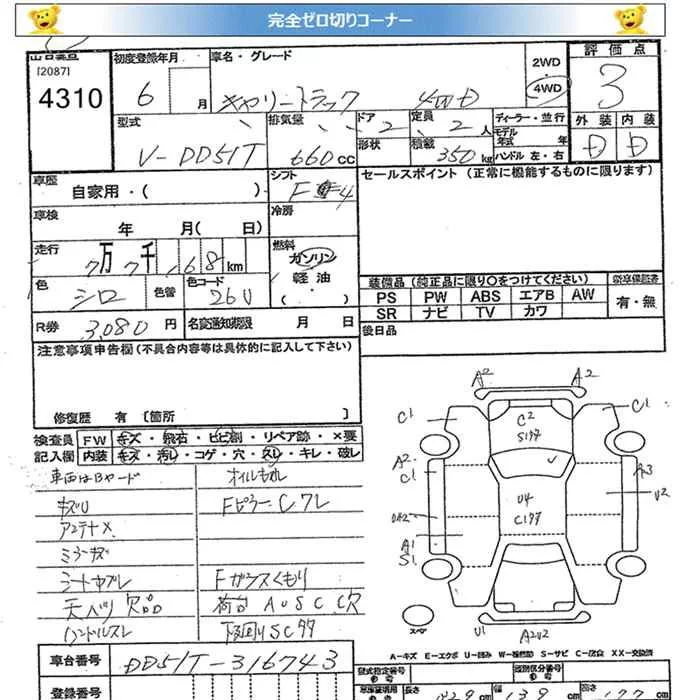 完全ゼロ切りコーナー
[2087]
4310
初度登録年月
6 月
車名・グレード
キャリートラック 4WD
2WD
4WD
評価点
3
外装 内装
D D
型式
V-DD51T
排気量
660 CC
ドア 2
形状
定員 2 人
積載 350 kg
ディーラー・並行
モデル年式 年
ハンドル 左・右
車歴
自家用・( )
シフト
F 4
セールスポイント (正常に機能するものに限ります)
車検
年 月( 日)
冷房
走行
7万7千168 km
燃料
ガソリン
軽油
( )
色
シロ
色替
色コード
26U
装備品 (純正品に限り○をつけてください)
新車保証書
PS PW ABS エアB AW
SR ナビ TV カワ
有・無
R券 3,080 円
名変通知期限 月 日
後日品
注意事項申告欄 (不具合内容等は具体的に記入して下さい)
修復歴 有 〔箇所 〕
検査員記入欄
FW キズ・飛石・ヒビ割・リペア跡・×要
内装 キズ・汚レ・コゲ・穴・スレ・キレ・破レ
車両はBヤード
オイルもれ
キズU
Fピラー C ワレ
アンテナ×
ミラーキズ
シートヤブレ
Fガラスくもり
天バリ欠品
荷台 A U S C C穴
ハンドルスレ
下廻りSCサ
A2 A2
C1 C1
C2
S1サ
A2
C1
A3
U2
U4
C1サ
A1
S1
U1
A2U2
スペア
A-キズ E-エクボ U-凹み W-補修跡 S-サビ C-腐食 XX-交換済
車台番号
DD51T-316743
登録番号
型式指定番号
類別区分番号
長さ